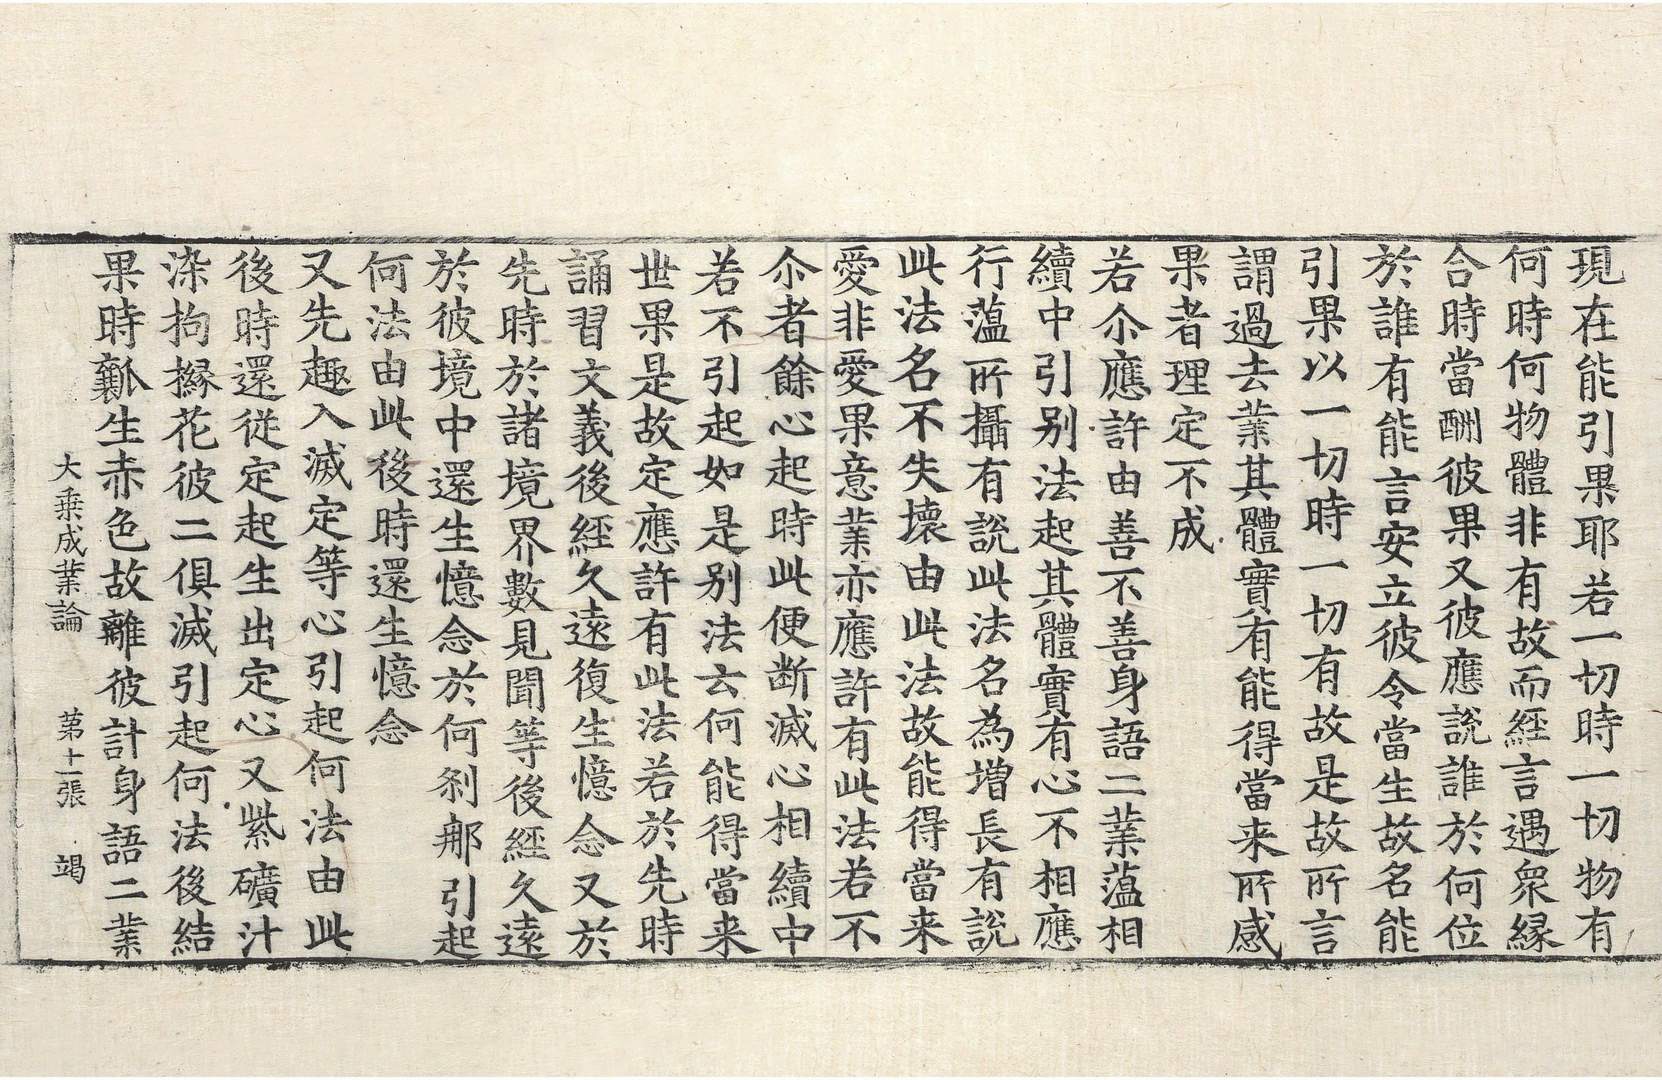 現在能引果耶若一切時一切物有
何時何物體非有故而經言遇衆縁
合時當酬彼果又彼應說誰於何位
於誰有能言安立彼令當生故名能
引果以一切時一切有故是故所言
謂過去業其體實有能得當来所感
果者理定不成
若尒應許由善不善身語二業薀相
續中引别法起其體實有心不相應
行薀所攝有說此法名為増長有說
此法名不失壞由此法故能得當来
愛非愛果意業亦應許有此法若不
尒者餘心起時此便断滅心相續中
若不引起如是别法云何能得當来
世果是故定應許有此法若於先時
誦習文義後經久遠復生憶念又於
先時於諸境界數見聞等後經久遠
於彼境中還生憶念於何剎那引起
何法由此後時還生憶念
又先趣入滅定等心引起何法由此
後時還從定起生出定心又紫礦汁
染拘櫞花彼二俱滅引起何法後結
果時瓤生赤色故離彼計身語二業
大乗成業論 第十一張 竭